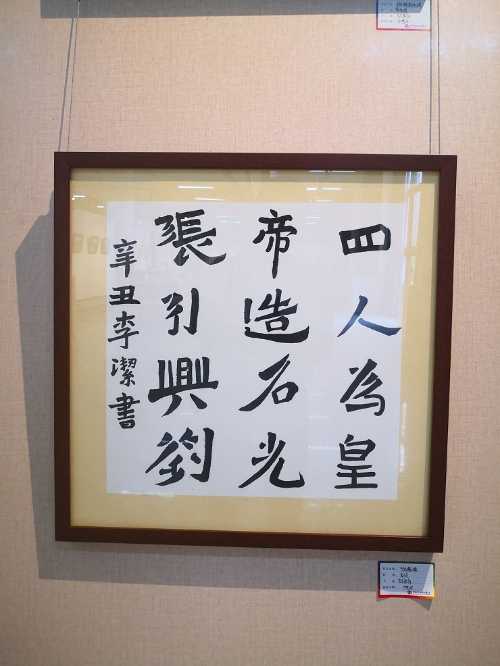 四人為皇
帝造石光
張引興劉
辛丑李潔書